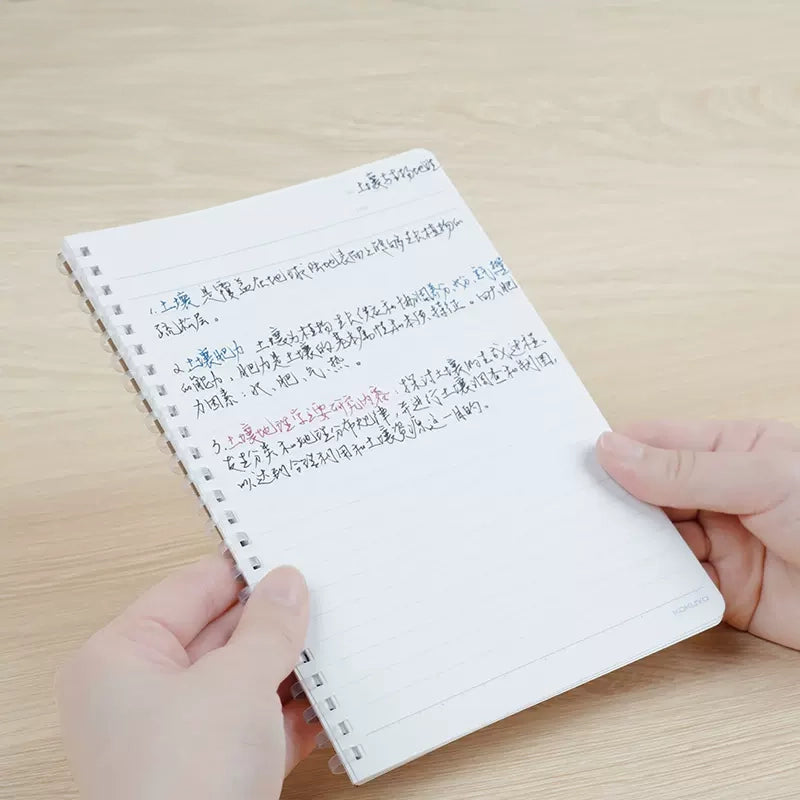 土壤与植物地理
1. 土壤 是覆盖在地球陆地表面上能够生长植物的
疏松层。
2. 土壤肥力 土壤为植物生长供应和协调养分、水分、空气、
的能力，肥力是土壤的基本属性和本质特征。四大肥
力因素：水、肥、气、热。
3. 土壤地理学主要研究内容：探讨土壤的生成过程、
发生分类和地理分布规律，并进行土壤调查和制图，
以达到合理利用和土壤资源这一目的。
KOKUYO